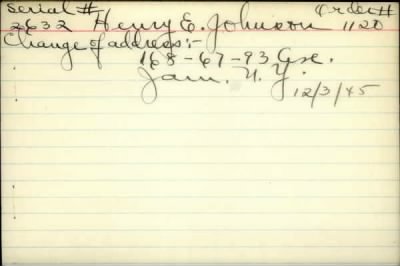 Serial # Order #
2632 Henry E. Johnson 1120
Change of address:-
168-67-93 Ave.
Jam. N.Y.
12/3/45